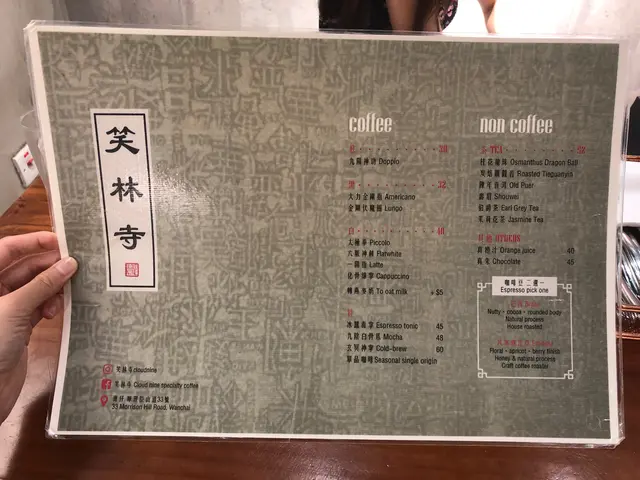 笑林寺
coffee
30
Doppio
32
大力金剛指 Americano
金剛伏魔圈 Lungo
白 40
大極拳 Piccolo
六脈神劍 Flatwhite
一陽指 Latte
化骨綿掌 Cappuccino
To oat milk +$5
冰 Espresso tonic 45
九陰白骨爪 Mocha 48
玄冥神掌 Cold-brew 60
單品咖啡 Seasonal single origin
non coffee
茶 TEA 38
Osmanthus Dragon Ball
Roasted Tieguanyin
陳年普洱 Old Puer
壽眉 Shoumei
伯爵茶 Earl Grey Tea
茉莉花茶 Jasmine Tea
其他 OTHERS
鮮橙汁 Orange juice 40
Chocolate 45
咖啡豆 二選一
Espresso pick one
Nutty・cocoa・rounded body
Natural process
House roasted
Floral・apricot・berry blends
Honey & natural process
Craft coffee roaster
笑林寺 cloudnine
笑林寺 Cloud nine specialty coffee
灣仔 摩理臣山道33號
33 Morrison Hill Road, Wanchai